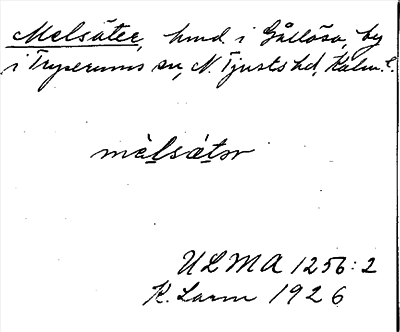 Melsäter, hmd i Gållösa, by
i Tryserums sn, N. Tjusts hd, Kalm. l.
mèlsætər
ULMA 1256:2
K. Larm 1926